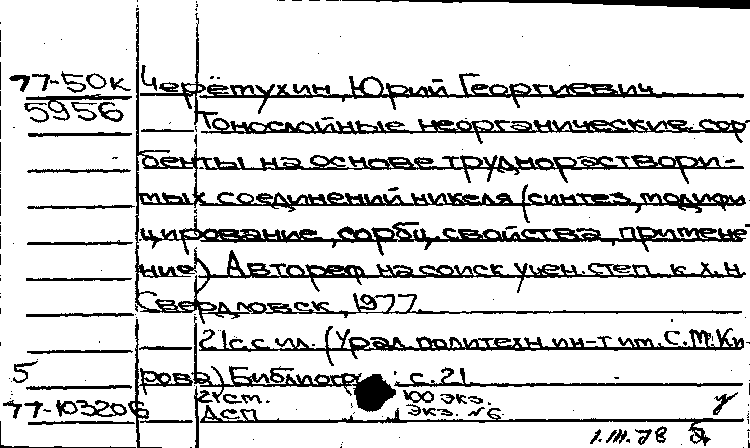 77-50к Черёмухин, Юрий Георгиевич.
5956
Тонослойные неорганические сор-
бенты на основе труднораствори-
мых соединений никеля (синтез, модифи-
цирование, сорбц. свойства, примене-
ние) Автореф. на соиск. учен. степ. к. х. н.
Свердловск, 1977.
21 с. с ил. (Урал. политехн. ин-т им. С. М. Ки-
5 рова) Библиогр.: с. 21
77-103206 21 ст. 100 экз.
ДСП экз. №6 у
1.III.78